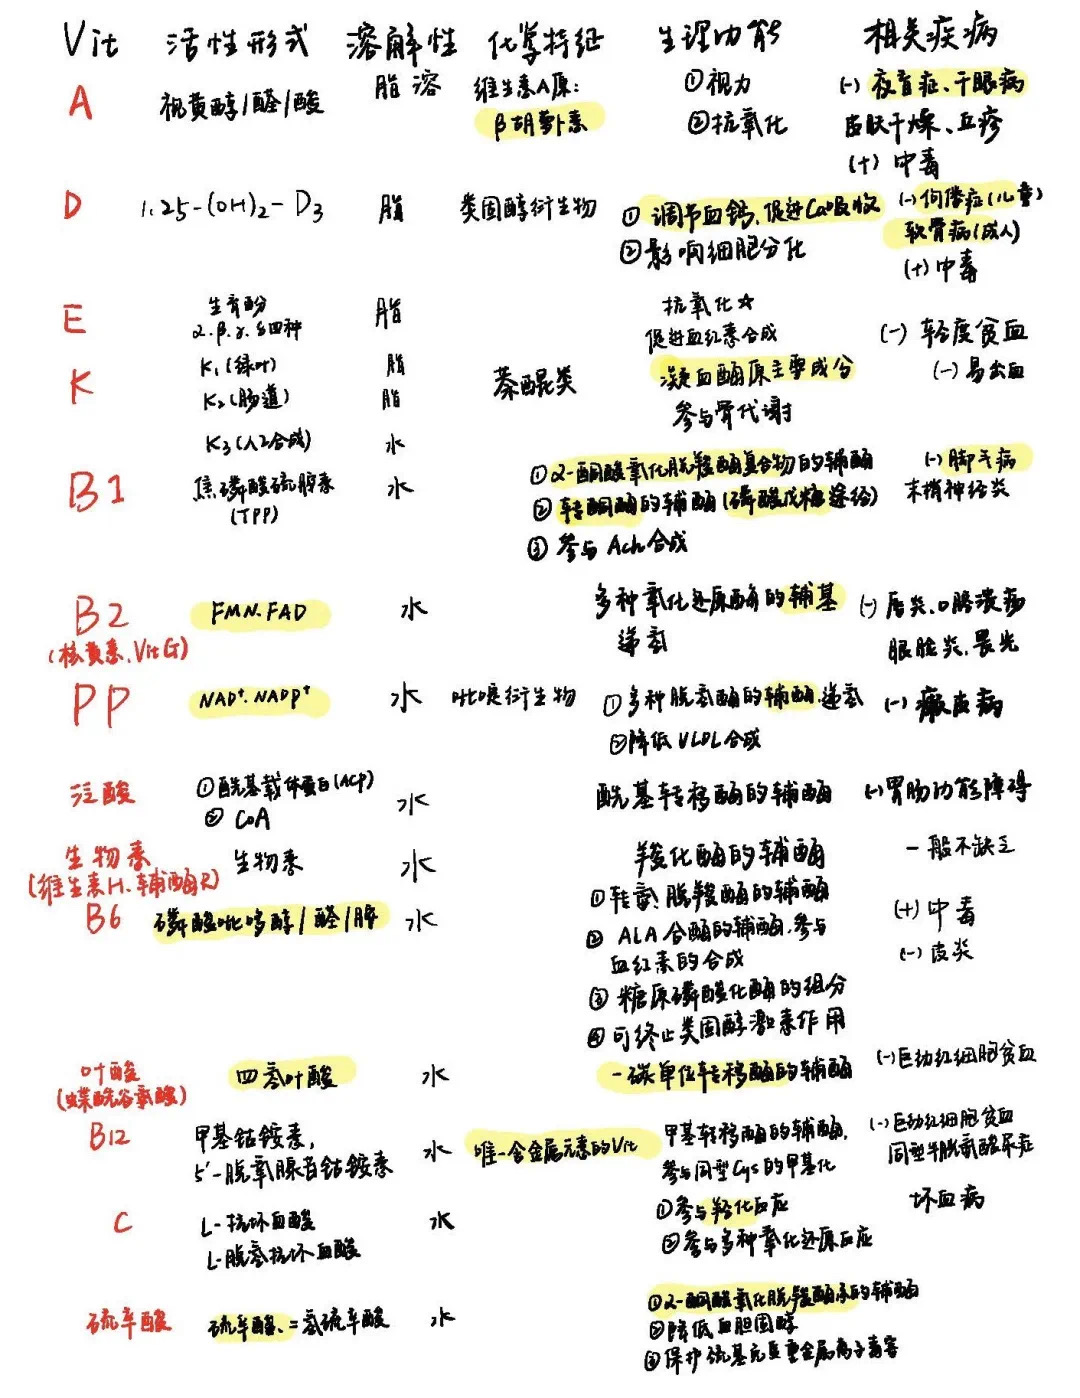 Vit 活性形式 溶解性 化学特征 生理功能 相关疾病
A 视黄醇/醛/酸 脂溶 维生素A原: ①视力 (-) 夜盲症、干眼病
β胡萝卜素 ②抗氧化 皮肤干燥、丘疹
(+) 中毒
D 1.25-(OH)2-D3 脂 类固醇衍生物 ① 调节血钙,促进Ca吸收 (-) 佝偻症(儿童)
②影响细胞分化 软骨病(成人)
(+) 中毒
E 生育酚 脂 抗氧化☆
α.β.γ.δ四种 促进血红素合成 (-) 轻度贫血
K K1(绿叶) 脂 萘醌类 凝血酶原主要成分 (-) 易出血
K2(肠道) 脂 参与骨代谢
K3(人工合成) 水
B1 焦磷酸硫胺素 水 ①α-酮酸氧化脱羧酶复合物的辅酶 (-) 脚气病
(TPP) ② 转酮酶的辅酶(磷酸戊糖途径) 末梢神经炎
③ 参与Ach合成
B2 FMN.FAD 水 多种氧化还原酶的辅基 (-) 唇炎、口腔溃疡
(核黄素、VitG) 递氢 眼睑炎、畏光
PP NAD+.NADP+ 水 吡啶衍生物 ①多种脱氢酶的辅酶.递氢 (-) 癞皮病
②降低VLDL合成
泛酸 ①酰基载体蛋白(ACP) 水 酰基转移酶的辅酶 (-)胃肠功能障碍
② CoA
生物素 生物素 水 羧化酶的辅酶 一般不缺乏
(维生素H、辅酶R)
B6 磷酸吡哆醇/醛/胺 水 ①转氨、脱羧酶的辅酶 (+) 中毒
② ALA合酶的辅酶.参与 (-) 皮炎
血红素的合成
③ 糖原磷酸化酶的组分
④ 可终止类固醇激素作用
叶酸 四氢叶酸 水 一碳单位转移酶的辅酶 (-)巨幼红细胞贫血
(蝶酰谷氨酸)
B12 甲基钴铵素, 水 唯一含金属元素的Vit 甲基转移酶的辅酶, (-)巨幼红细胞贫血
5'-脱氧腺苷钴铵素 参与同型Cys的甲基化 同型半胱氨酸尿症
C L-抗坏血酸 水 ①参与羟化反应 坏血病
L-脱氢抗坏血酸 ②参与多种氧化还原反应
硫辛酸 硫辛酸、=氢硫辛酸 水 ①α-酮酸氧化脱羧酶系的辅酶
②降低血胆固醇
③保护巯基免重金属离子毒害